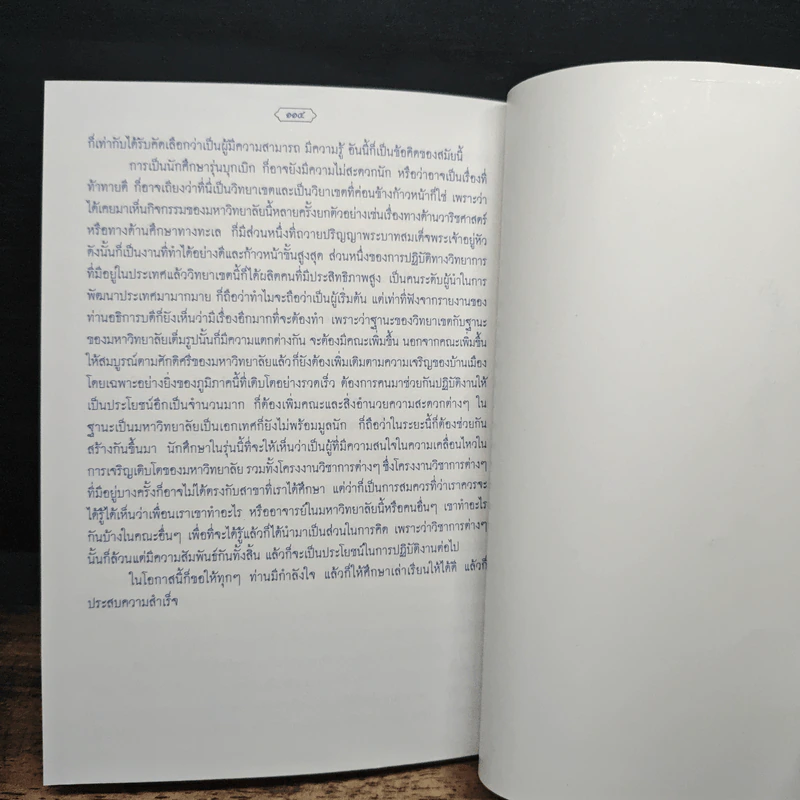 ๑๑๔
ก็เท่ากับได้รับคัดเลือกว่าเป็นผู้มีความสามารถ มีความรู้ อันนี้ก็เป็นข้อคิดของสมัยนี้
การเป็นนักศึกษารุ่นบุกเบิก ก็อาจยังมีความไม่สะดวกนัก หรือว่าอาจเป็นเรื่องที่
ท้าทายดี ก็อาจเถียงว่าที่นี่เป็นวิทยาเขตและเป็นวิทยาเขตที่ค่อนข้างก้าวหน้าก็ใช่ เพราะว่า
ได้เคยมาเห็นกิจกรรมของมหาวิทยาลัยนี้หลายครั้งยกตัวอย่างเช่นเรื่องทางด้านวาริชศาสตร์
หรือทางด้านศึกษาทางทะเล ก็มีส่วนหนึ่งที่ถวายปริญญาพระบาทสมเด็จพระเจ้าอยู่หัว
ดังนั้นก็เป็นงานที่ทำได้อย่างดีและก้าวหน้าขั้นสูงสุด ส่วนหนึ่งของการปฏิบัติทางวิทยาการ
ที่มีอยู่ในประเทศแล้ววิทยาเขตนี้ก็ได้ผลิตคนที่มีประสิทธิภาพสูง เป็นคนระดับผู้นำในการ
พัฒนาประเทศมามากมาย ก็ถือว่าทำไมจะถือว่าเป็นผู้เริ่มต้น แต่เท่าที่ฟังจากรายงานของ
ท่านอธิการบดีก็ยังเห็นว่ามีเรื่องอีกมากที่จะต้องทำ เพราะว่าฐานะของวิทยาเขตกับฐานะ
ของมหาวิทยาลัยเต็มรูปนั้นก็มีความแตกต่างกัน จะต้องมีคณะเพิ่มขึ้น นอกจากคณะเพิ่มขึ้น
ให้สมบูรณ์ตามศักดิ์ศรีของมหาวิทยาลัยแล้วก็ยังต้องเพิ่มเติมตามความเจริญของบ้านเมือง
โดยเฉพาะอย่างยิ่งของภูมิภาคนี้ที่เติบโตอย่างรวดเร็ว ต้องการคนมาช่วยกันปฏิบัติงานให้
เป็นประโยชน์อีกเป็นจำนวนมาก ก็ต้องเพิ่มคณะและสิ่งอำนวยความสะดวกต่างๆ ใน
ฐานะเป็นมหาวิทยาลัยเป็นเอกเทศก็ยังไม่พร้อมมูลนัก ก็ถือว่าในระยะนี้ก็ต้องช่วยกัน
สร้างกันขึ้นมา นักศึกษาในรุ่นนี้ที่จะให้เห็นว่าเป็นผู้ที่มีความสนใจในความเคลื่อนไหวใน
การเจริญเติบโตของมหาวิทยาลัย รวมทั้งโครงงานวิชาการต่างๆ ซึ่งโครงงานวิชาการต่างๆ
ที่มีอยู่บางครั้งก็อาจไม่ได้ตรงกับสาขาที่เราได้ศึกษา แต่ว่าก็เป็นการสมควรที่ว่าเราควรจะ
ได้รู้ได้เห็นว่าเพื่อนเราเขาทำอะไร หรืออาจารย์ในมหาวิทยาลัยนี้หรือคนอื่นๆ เขาทำอะไร
กันบ้างในคณะอื่นๆ เพื่อที่จะได้รู้แล้วก็ได้นำมาเป็นส่วนในการคิด เพราะว่าวิชาการต่างๆ
นั้นก็ล้วนแต่มีความสัมพันธ์กันทั้งสิ้น แล้วก็จะเป็นประโยชน์ในการปฏิบัติงานต่อไป
ในโอกาสนี้ก็ขอให้ทุกๆ ท่านมีกำลังใจ แล้วก็ให้ศึกษาเล่าเรียนให้ได้ดี แล้วก็
ประสบความสำเร็จ